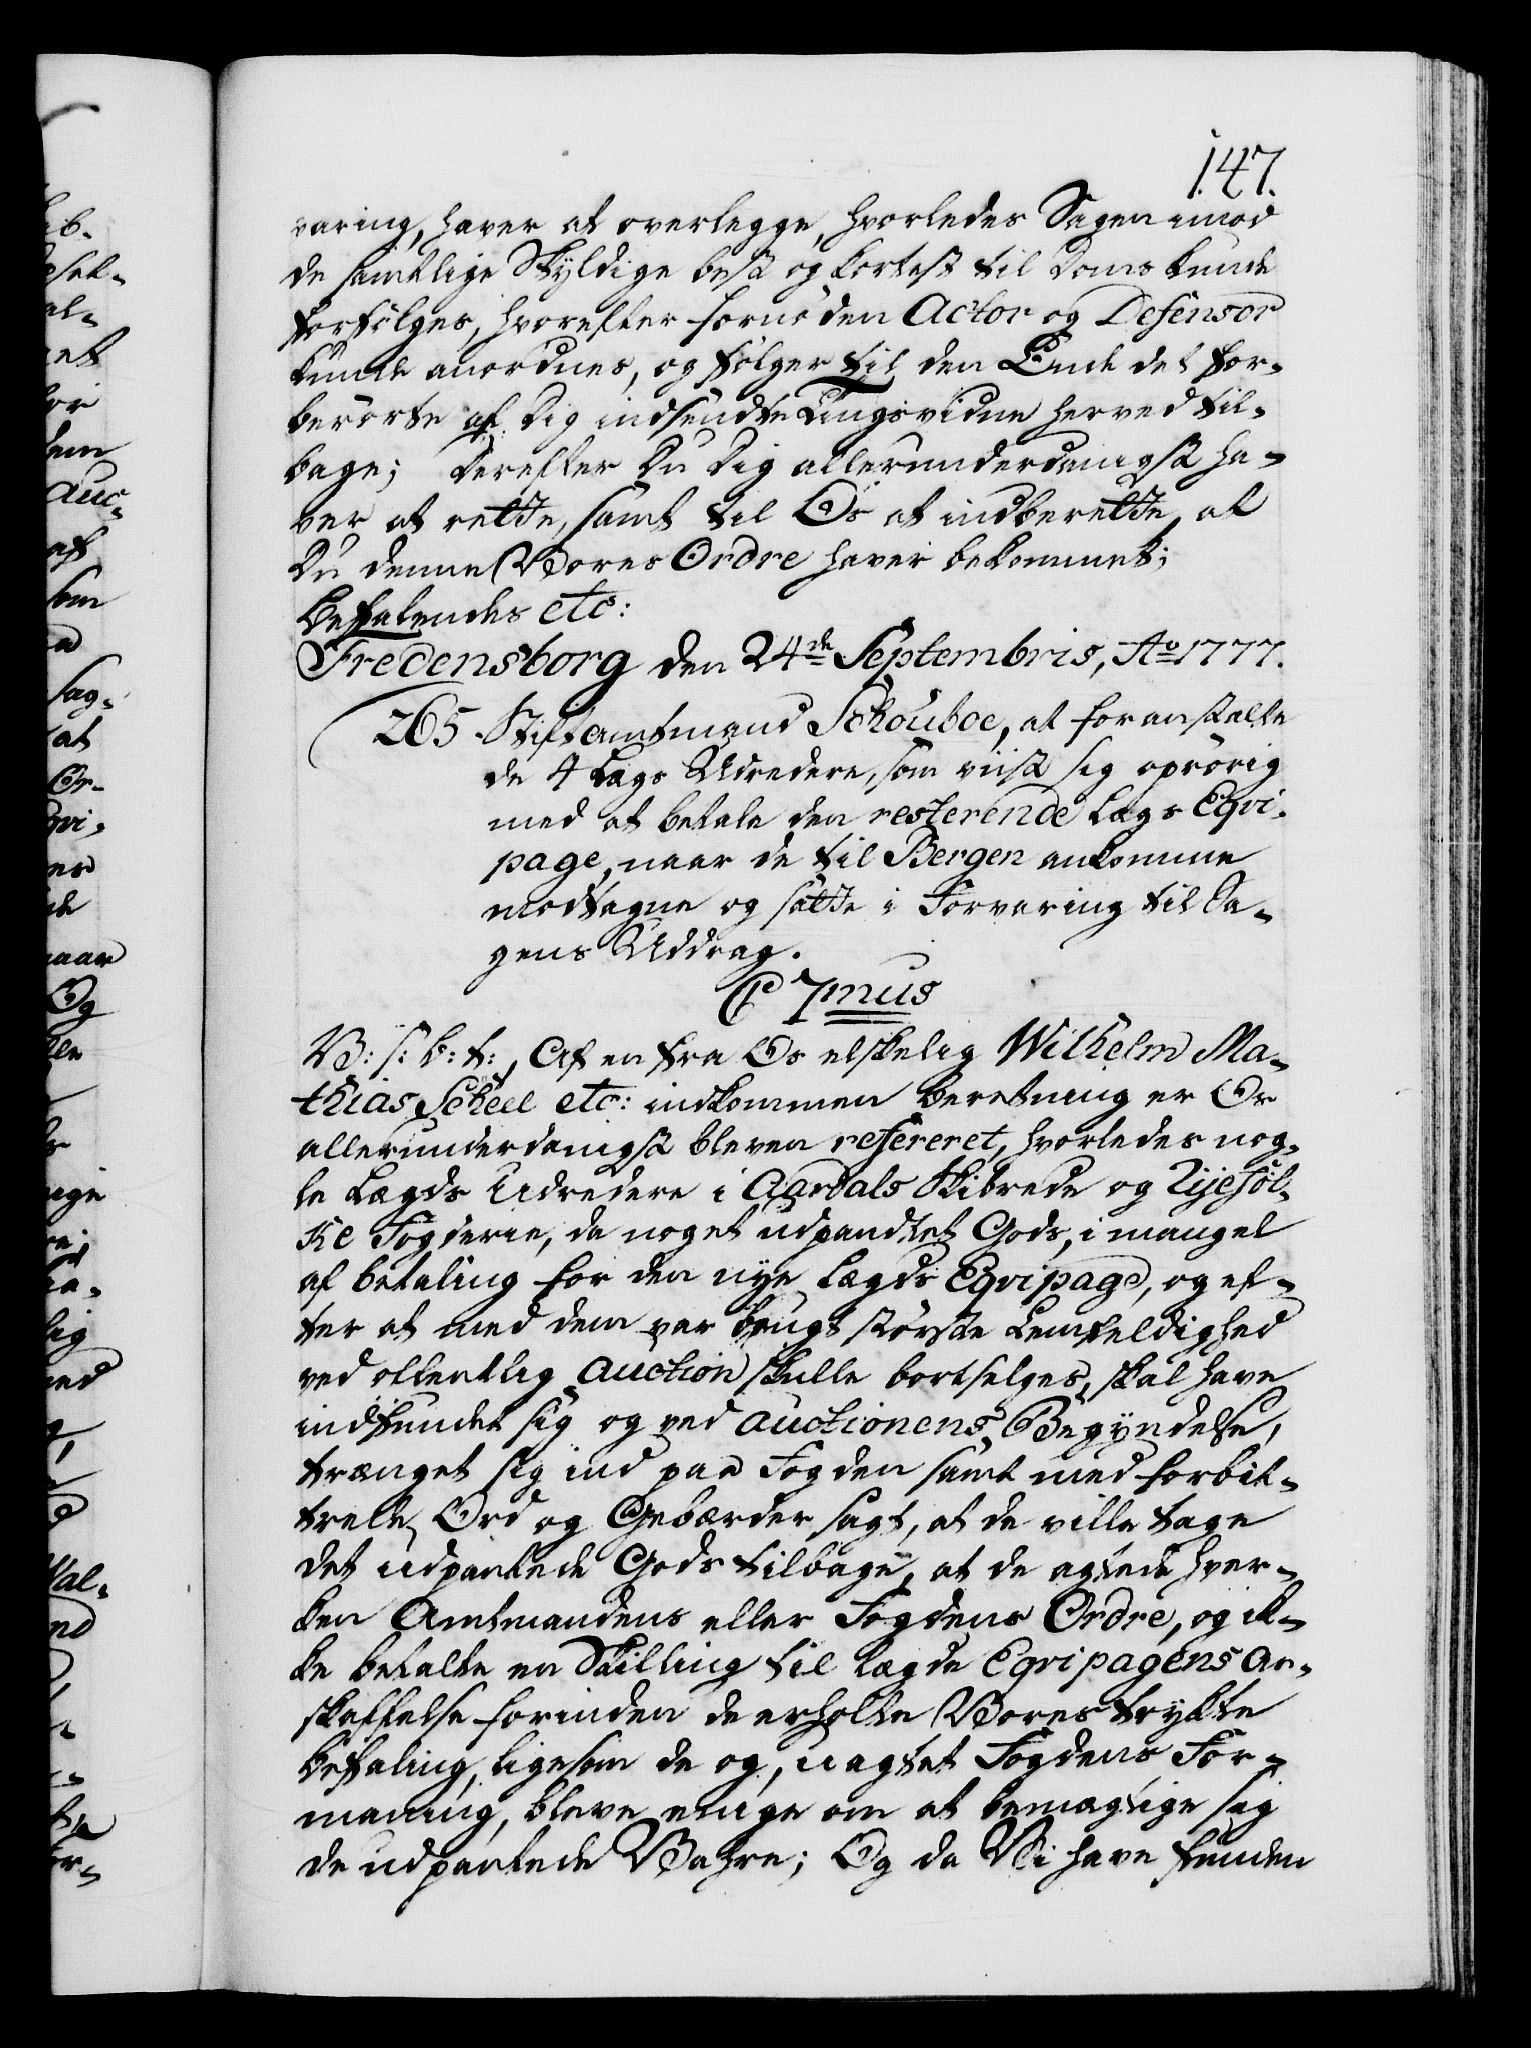 147.
varing, haver at overlegge, hvorledes Sagen imod
de samtlige Skyldige best og kortest til Doms kunde
forfølges, hvorefter fornøden Actor og Defensor
kunde anordnes, og følger til den Ende det for-
berørte af Dig indsendte Tingsvidne herved til-
bage; Derefter Du Dig allerunderdanigst ha-
ver at rette, samt til Os at indberette, at
Du denne Vores Ordre haver bekommet;
Befalendes etc:
Fredensborg den 24de Septembris, Ao 1777.
265 Stiftamtmand Schouboe, at foranstalte
de 4 Lægs Udredere, som viist sig oprørig
med at betale den resterende Lægs Eqvi-
page, naar de til Bergen ankomme
modtagne og satte i Forvaring til Sa-
gens Uddrag.
C 7mus
V: s: b: t:, Af en fra Os elskelig Wilhelm Ma-
thias Scheel etc: indkommen Beretning er Os
allerunderdanigst bleven refereret, hvorledes nog-
le Lægds Udredere i Aardals Skibrede og
Fogderie, da noget udpandtet Gods, i mangel
af betaling for den nye Lægds Eqvipage, og ef-
ter at med dem var brugt største Lemfeldighed
ved offentlig Auction skulle bortselges, skal have
indfundet sig og ved Auctionens Begyndelse,
trænget sig ind paa Fogden samt med forbit-
trede Ord og Gebærder sagt, at de ville tage
det udpantede Gods tilbage, at de agtede hver-
ken Amtmandens eller Fogdens Ordre, og ik-
ke betalte en Skilling til Lægds Eqvipagens an-
skaffelse forinden de erholte Vores trykte
Befaling, ligesom de og, uagtet Fogdens For-
maning, bleve enige om at bemægtige sig
de udpantede Vahre; Og da Vi have funden